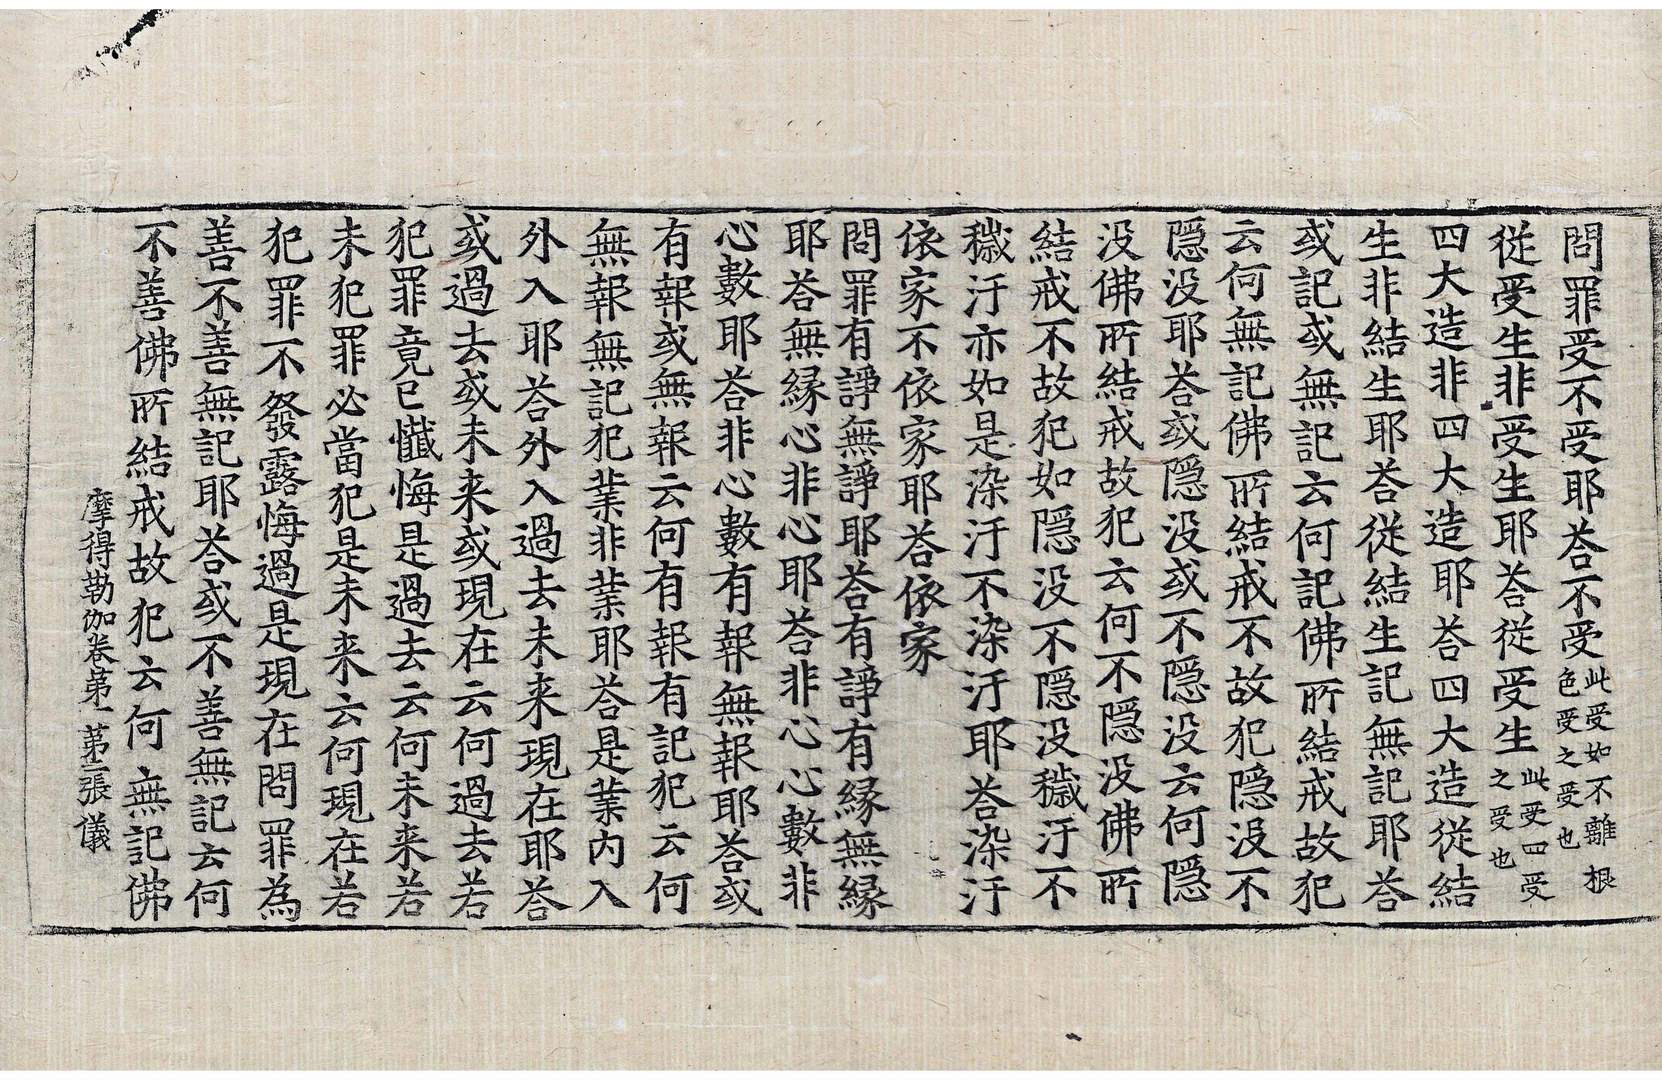 問罪受不受耶荅不受此受如不離根色受之受也
從受生非受生耶荅從受生此受四受之受也
四大造非四大造耶荅四大造從結
生非結生耶荅從結生記無記耶荅
或記或無記云何記佛所結戒故犯
云何無記佛所結戒不故犯隱没不
隱没耶荅或隱没或不隱没云何隱
没佛所結戒故犯云何不隱没佛所
結戒不故犯如隱没不隱没穢汙不
穢汙亦如是染汙不染汙耶荅染汙
依家不依家耶荅依家
問罪有諍無諍耶荅有諍有縁無縁
耶荅無縁心非心耶荅非心心數非
心數耶荅非心數有報無報耶荅或
有報或無報云何有報有記犯云何
無報無記犯業非業耶荅是業内入
外入耶荅外入過去未来現在耶荅
或過去或未来或現在云何過去若
犯罪竟已懺悔是過去云何未来若
未犯罪必當犯是未来云何現在若
犯罪不發露悔過是現在問罪為
善不善無記耶荅或不善無記云何
不善佛所結戒故犯云何無記佛
摩得勒伽卷第一 第三張 儀